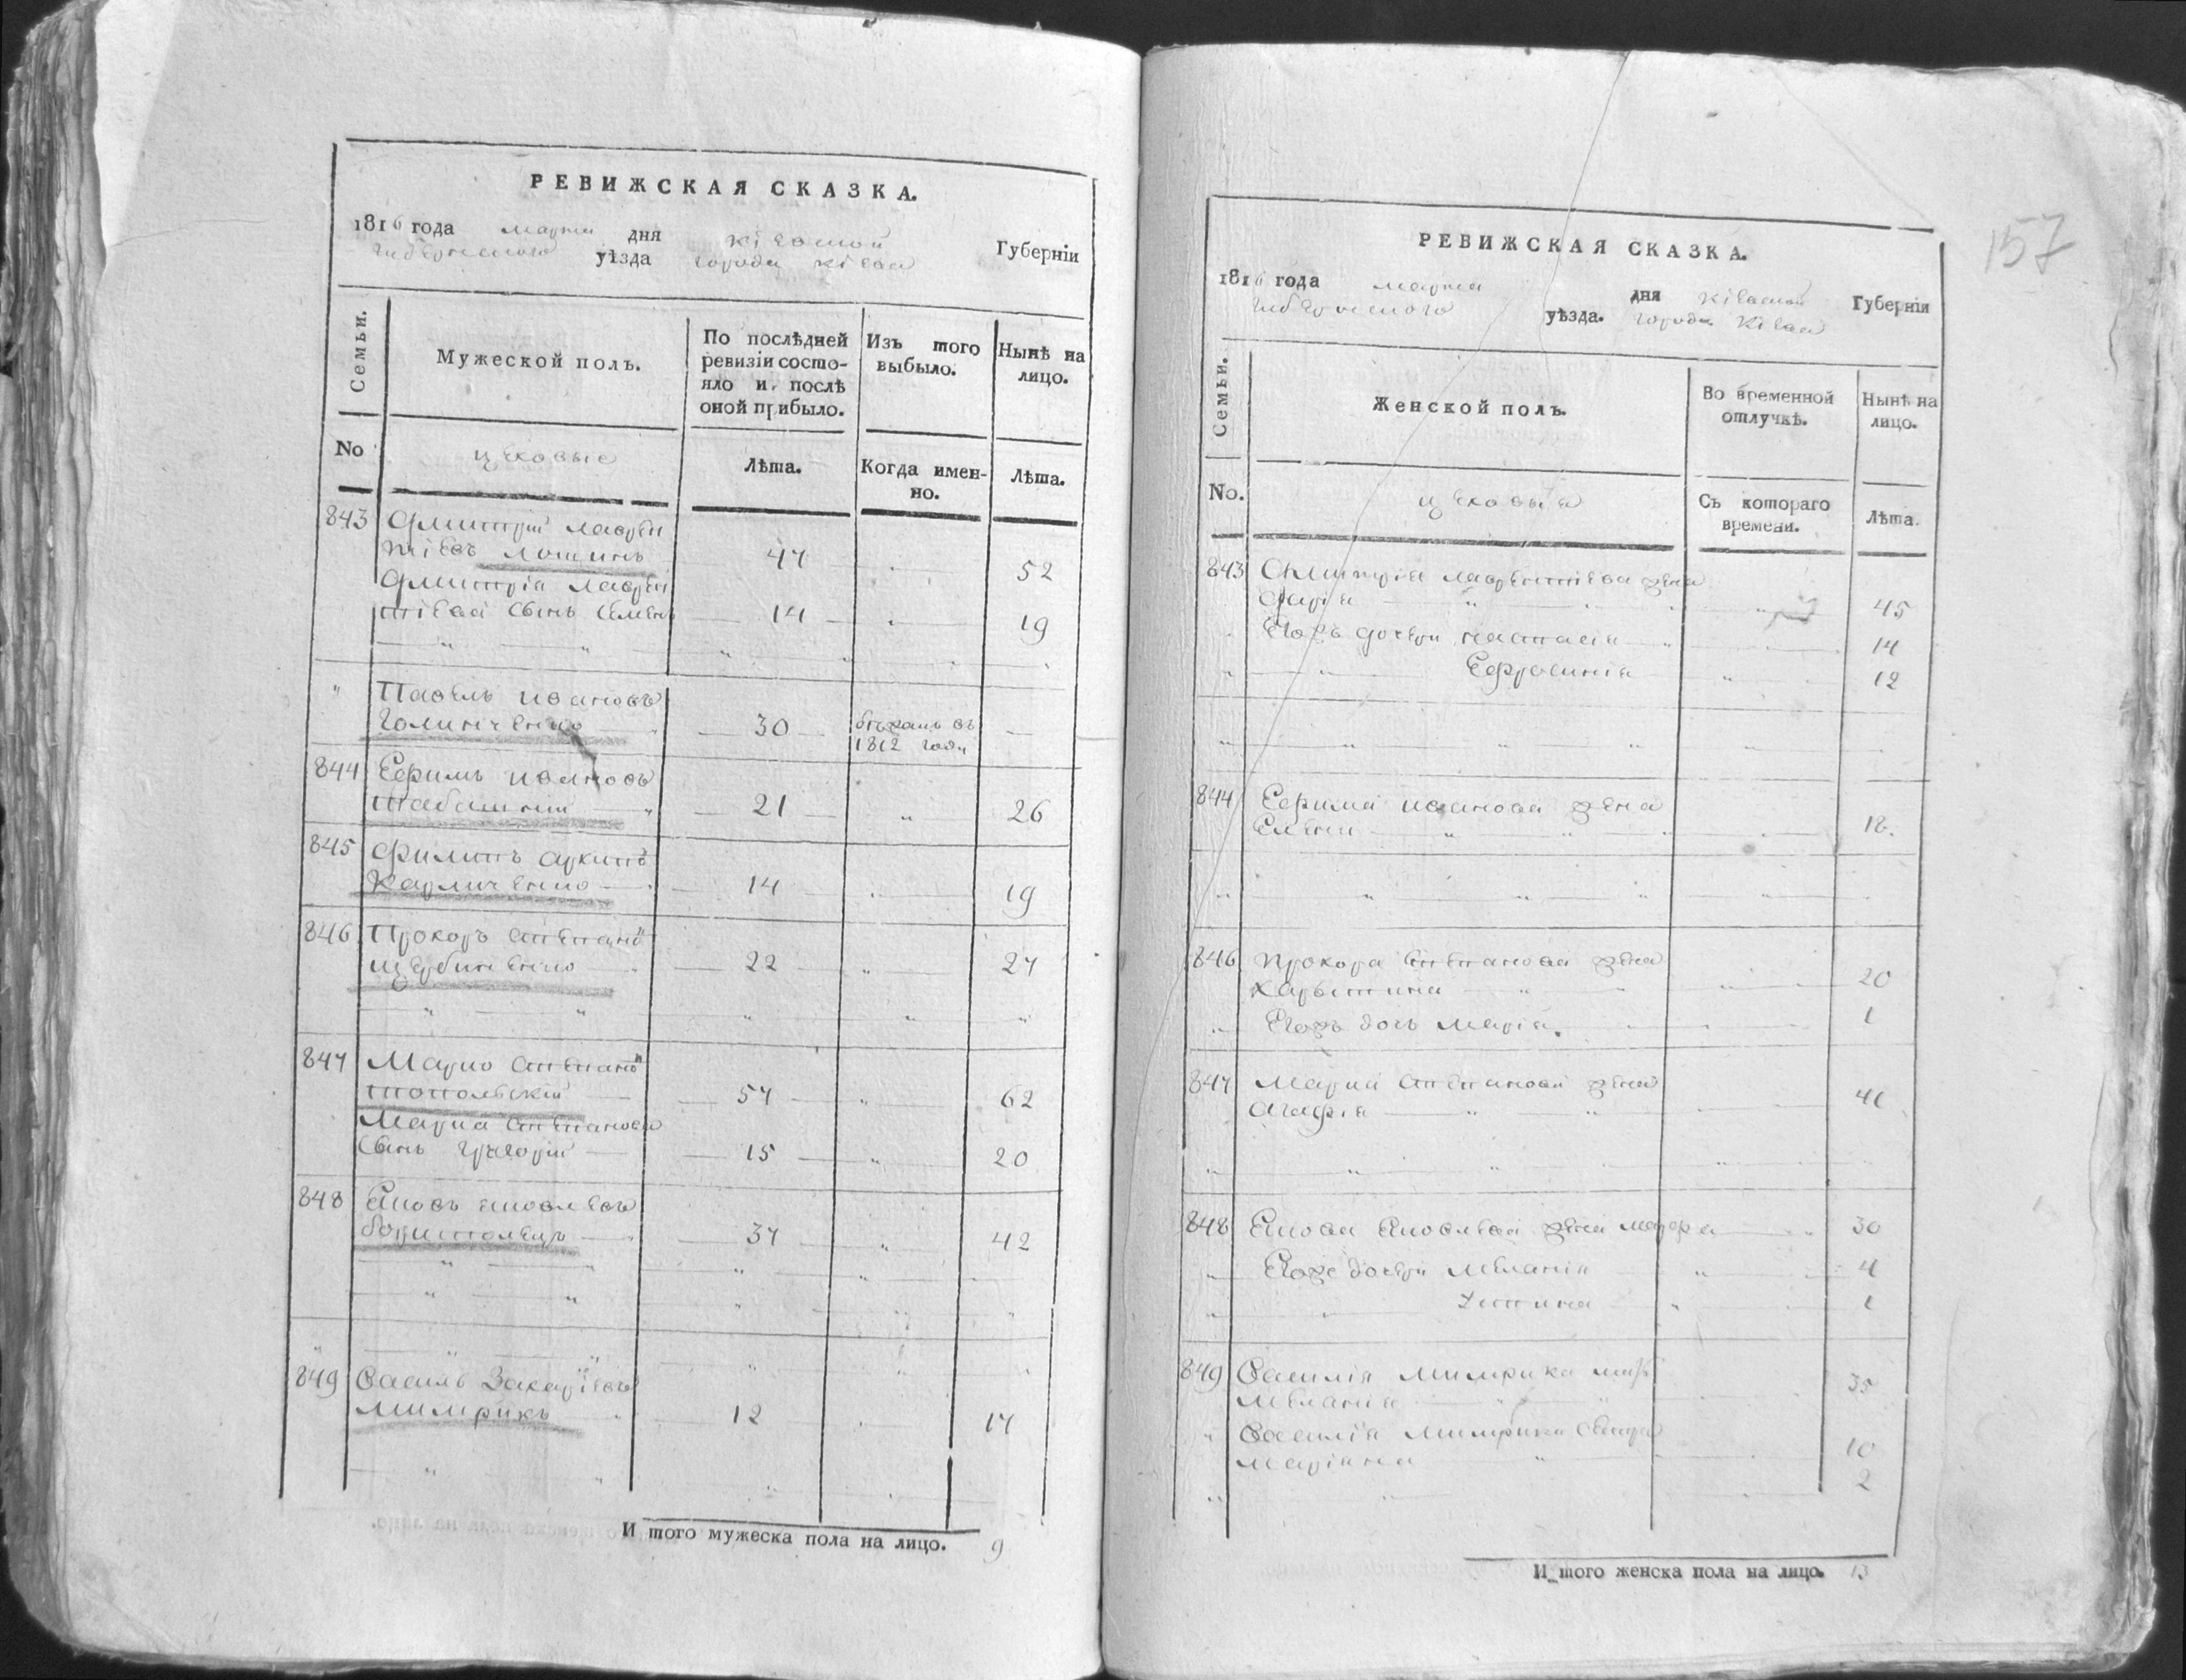 РЕВИЖСКАЯ СКАЗКА.
1816 года марта дня Кіевской Губерніи
уѣзда города Кіева
Семьи.
Мужеской полъ.
По послѣдней
ревизіи состо-
яло и послѣ
оной прибыло.
Изъ того
выбыло.
Нынѣ на
лицо.
No
цеховые
Лѣта.
Когда имен-
но.
Лѣта.
843 Дмитрій Лаврен
тіевъ 47 52
Дмитрія Лаврен
тіева сынъ Семенъ 14 19
Павелъ Ивановъ
Голиніченко 30 бѣжалъ въ
1812 году
844 Ефимъ Ивановъ
21 26
845 Филипъ
Карпиченко 14 19
846 Прокоръ Степано
Щербиненко 22 27
847 Марко Степано
Топольскій 57 62
Марка Степанова
сынъ Григорій 15 20
848 Яковъ Яковлевъ
Бориспольецъ 37 42
849 Василь Захаріевъ
Мимрикъ 12 17
И того мужеска пола на лицо. 9
157
РЕВИЖСКАЯ СКАЗКА.
1816 года марта дня Кіевской Губерніи
уѣзда. города Кіева
Семьи.
Женской полъ.
Во временной
отлучкѣ.
Нынѣ на
лицо.
No.
цеховыя
Съ котораго
времени.
Лѣта.
843 Дмитрія Лаврентіева жена
Дарія 45
Егожъ дочери Настасія 14
Ефросинія 12
844 Ефима Иванова жена
Елена 18.
846 Прокора Степанова жена
Харытина 20
Егожъ дочь Марія. 1
847 Марка Степанова жена
Агафія 41
848 Якова Яковлева жена Марфа 30
Егоже дочери Меланія 4
Устина 1
849 Василія Мимрика
Меланія 35
Василія Мимрика сестра
Маріяна 10
2
И того женска пола на лицо. 13